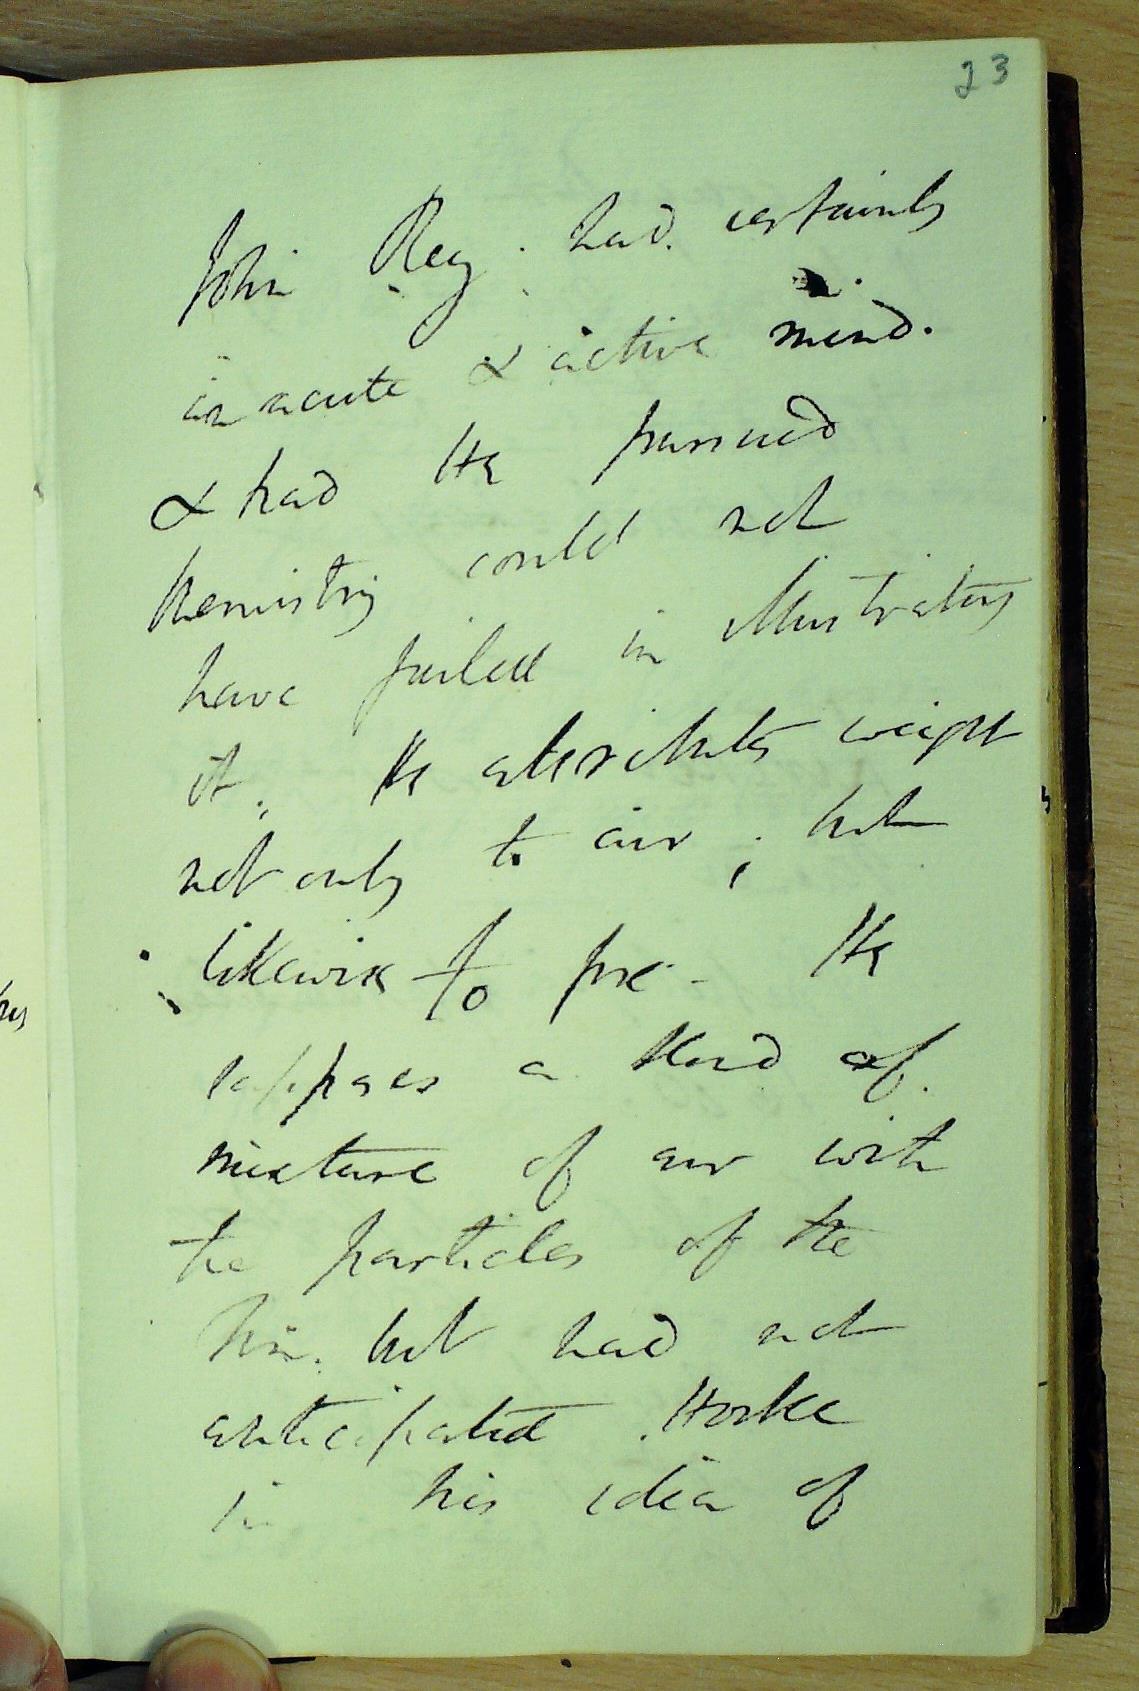 23
John Rey had certainly
an acute & active mind.
& had He pursued
Chemistry could not
have failed in illustrating
it. He attributes weight
not only to air; but
likewise to fire - He
supposes a kind of
mixture of air with
the particles of the
tin. but had not
anticipated Hooke
in his idea of